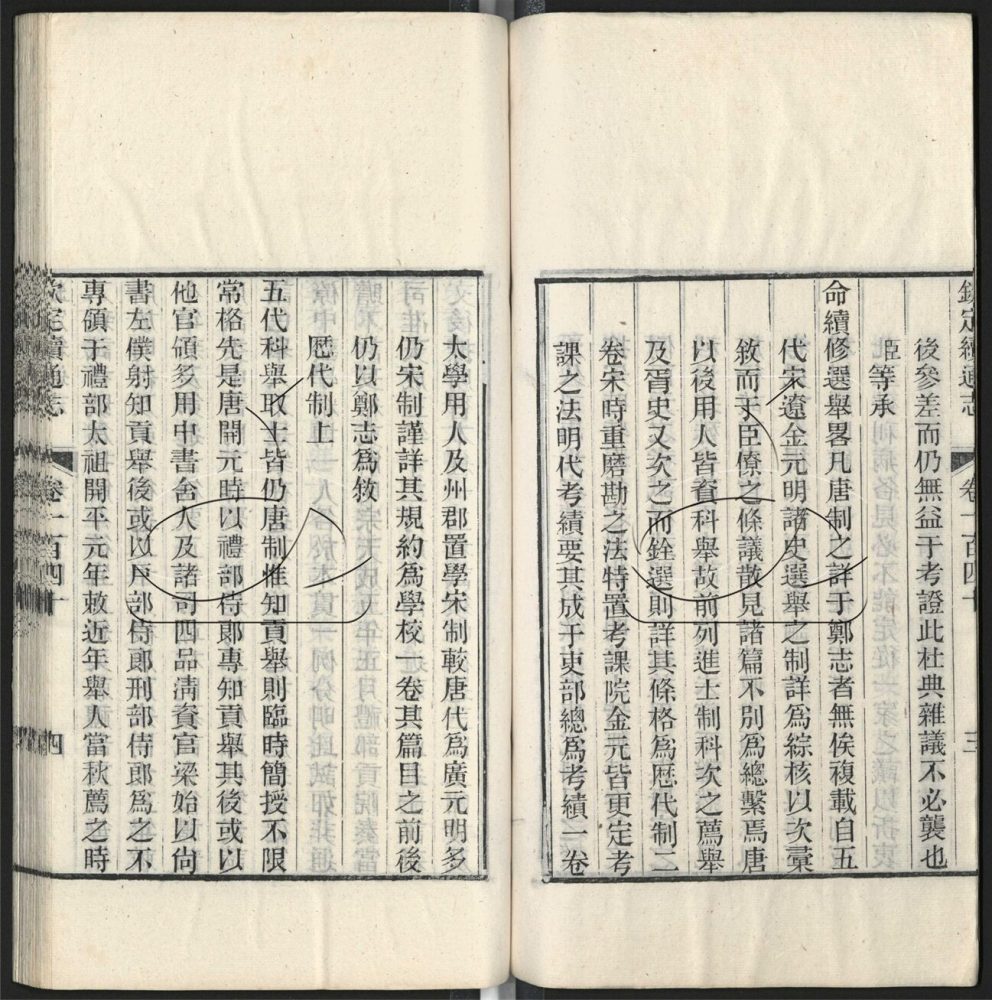 欽定續通志 卷一百四十 三
後參差而仍無益于考證此杜典雜議不必襲也
臣等承
命續修選舉畧凡唐制之詳于鄭志者無俟複載自五
代宋遼金元明諸史選舉之制詳為綜核以次彚
敘而于臣僚之條議散見諸篇不別為總繫焉唐
以後用人皆資科舉故前列進士制科次之薦舉
及胥史又次之而銓選則詳其條格為歷代制二
卷宋時重磨勘之法特置考課院金元皆更定考
課之法明代考績要其成于吏部總為考績一卷
太學用人及州郡置學宋制較唐代為廣元明多
仍宋制謹詳其規約為學校一卷其篇目之前後
仍以鄭志為敘
歷代制上
五代科舉取士皆仍唐制惟知貢舉則臨時簡授不限
常格先是唐開元時以禮部侍郞專知貢舉其後或以
他官領多用中書舍人及諸司四品清資官梁始以尙
書左僕射知貢舉後或以戶部侍郞刑部侍郞為之不
專領于禮部太祖開平元年敕近年舉人當秋薦之時
欽定續通志 卷一百四十 四